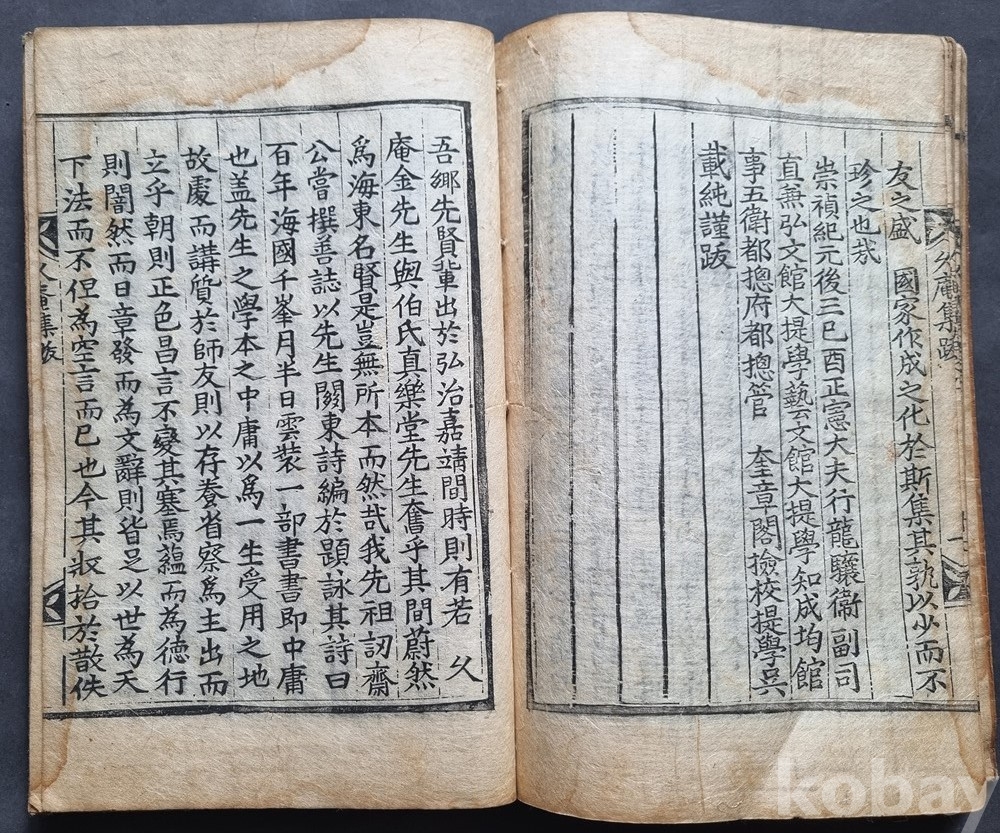 友之盛 國家作成之化於斯集其孰以少而不
珍之也哉
崇禎紀元後三己酉正憲大夫行龍驤衛副司
直兼弘文館大提學藝文館大提學知成均館
事五衛都摠府都摠管 奎章閣撿校提學吳
載純謹跋
吾鄉先賢輩出於弘治嘉靖間時則有若 久
庵金先生與伯氏真樂堂先生奮乎其間蔚然
爲海東名賢是豈無所本而然哉我先祖訒齋
公嘗撰善誌以先生關東詩編於題詠其詩曰
百年海國千峯月半日雲裝一部書書即中庸
也盖先生之學本之中庸以爲一生受用之地
故處而講質於師友則以存養省察爲主出而
立乎朝則正色昌言不變其塞焉蘊而為德行
則闇然而日章發而為文辭則皆足以世為天
下法而不但為空言而已也今其収拾於散佚
久庵集跋
久庵集跋
kobay